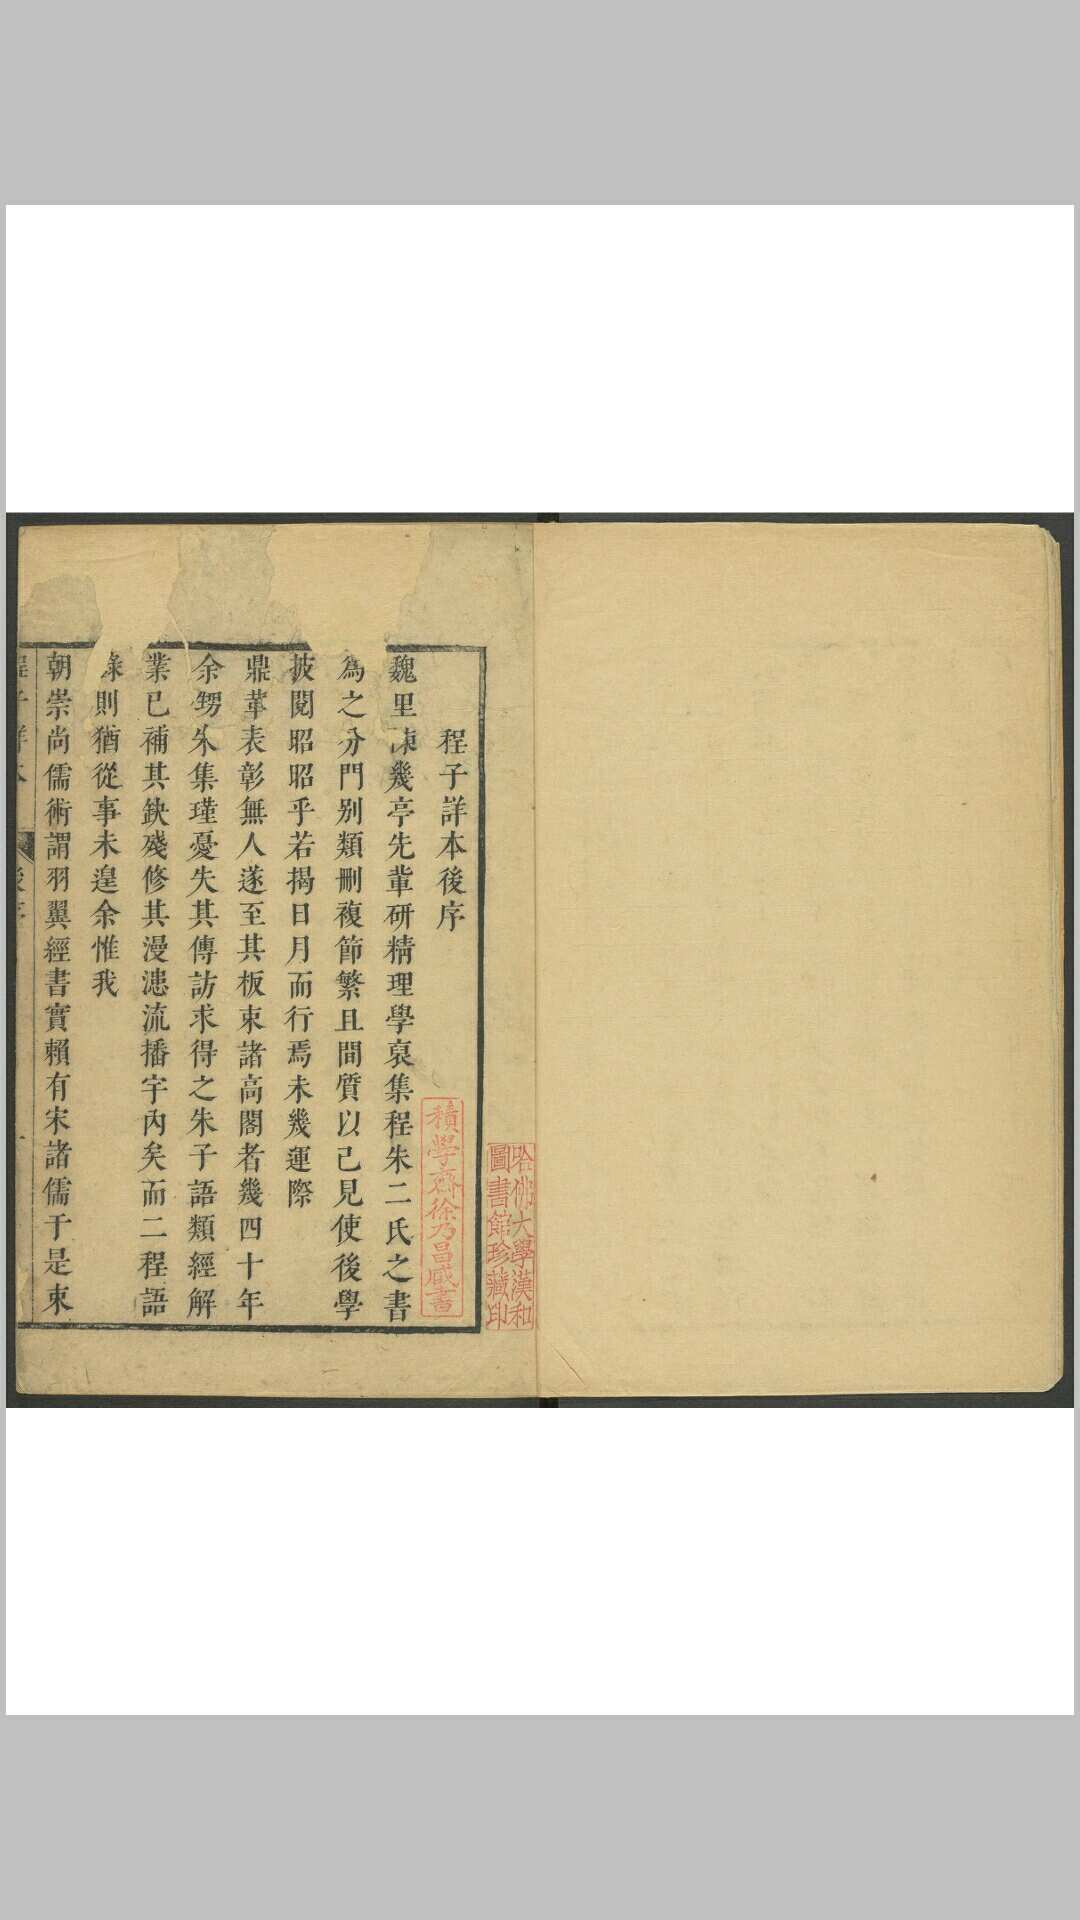 程子詳本後序
魏里陳幾亭先輩研精理學裒集程朱二氏之書
為之分門别類刪複節繁且間質以己見使後學
披閱昭昭乎若揭日月而行焉未幾運際
鼎革表彰無人遂至其板束諸高閣者幾四十年
余甥朱集瑾憂失其傳訪求得之朱子語類經解
業已補其鈌殘修其漫漶流播宇內矣而二程語
錄則猶從事未遑余惟我
朝崇尚儒術謂羽翼經書實賴有宋諸儒于是束
積學齋徐乃昌藏書
哈佛大學漢和
圖書館珍藏印